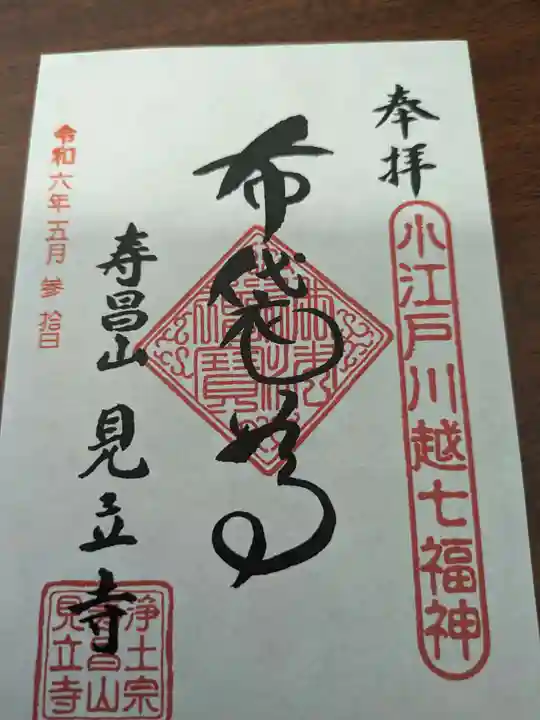 奉拝
小江戸川越七福神
布袋尊
佛法僧寳
寿昌山 見立寺
浄土宗
寿昌山
見立寺
令和六年五月参拾日